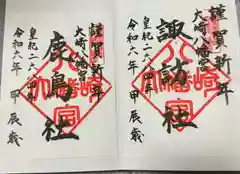 謹賀新年
大崎八幡宮
鹿島社
皇紀二六八四年
令和六年
甲辰歳
大崎八幡宮
謹賀新年
大崎八幡宮
諏訪社
皇紀二六八四年
令和六年
甲辰歳
大崎八幡宮